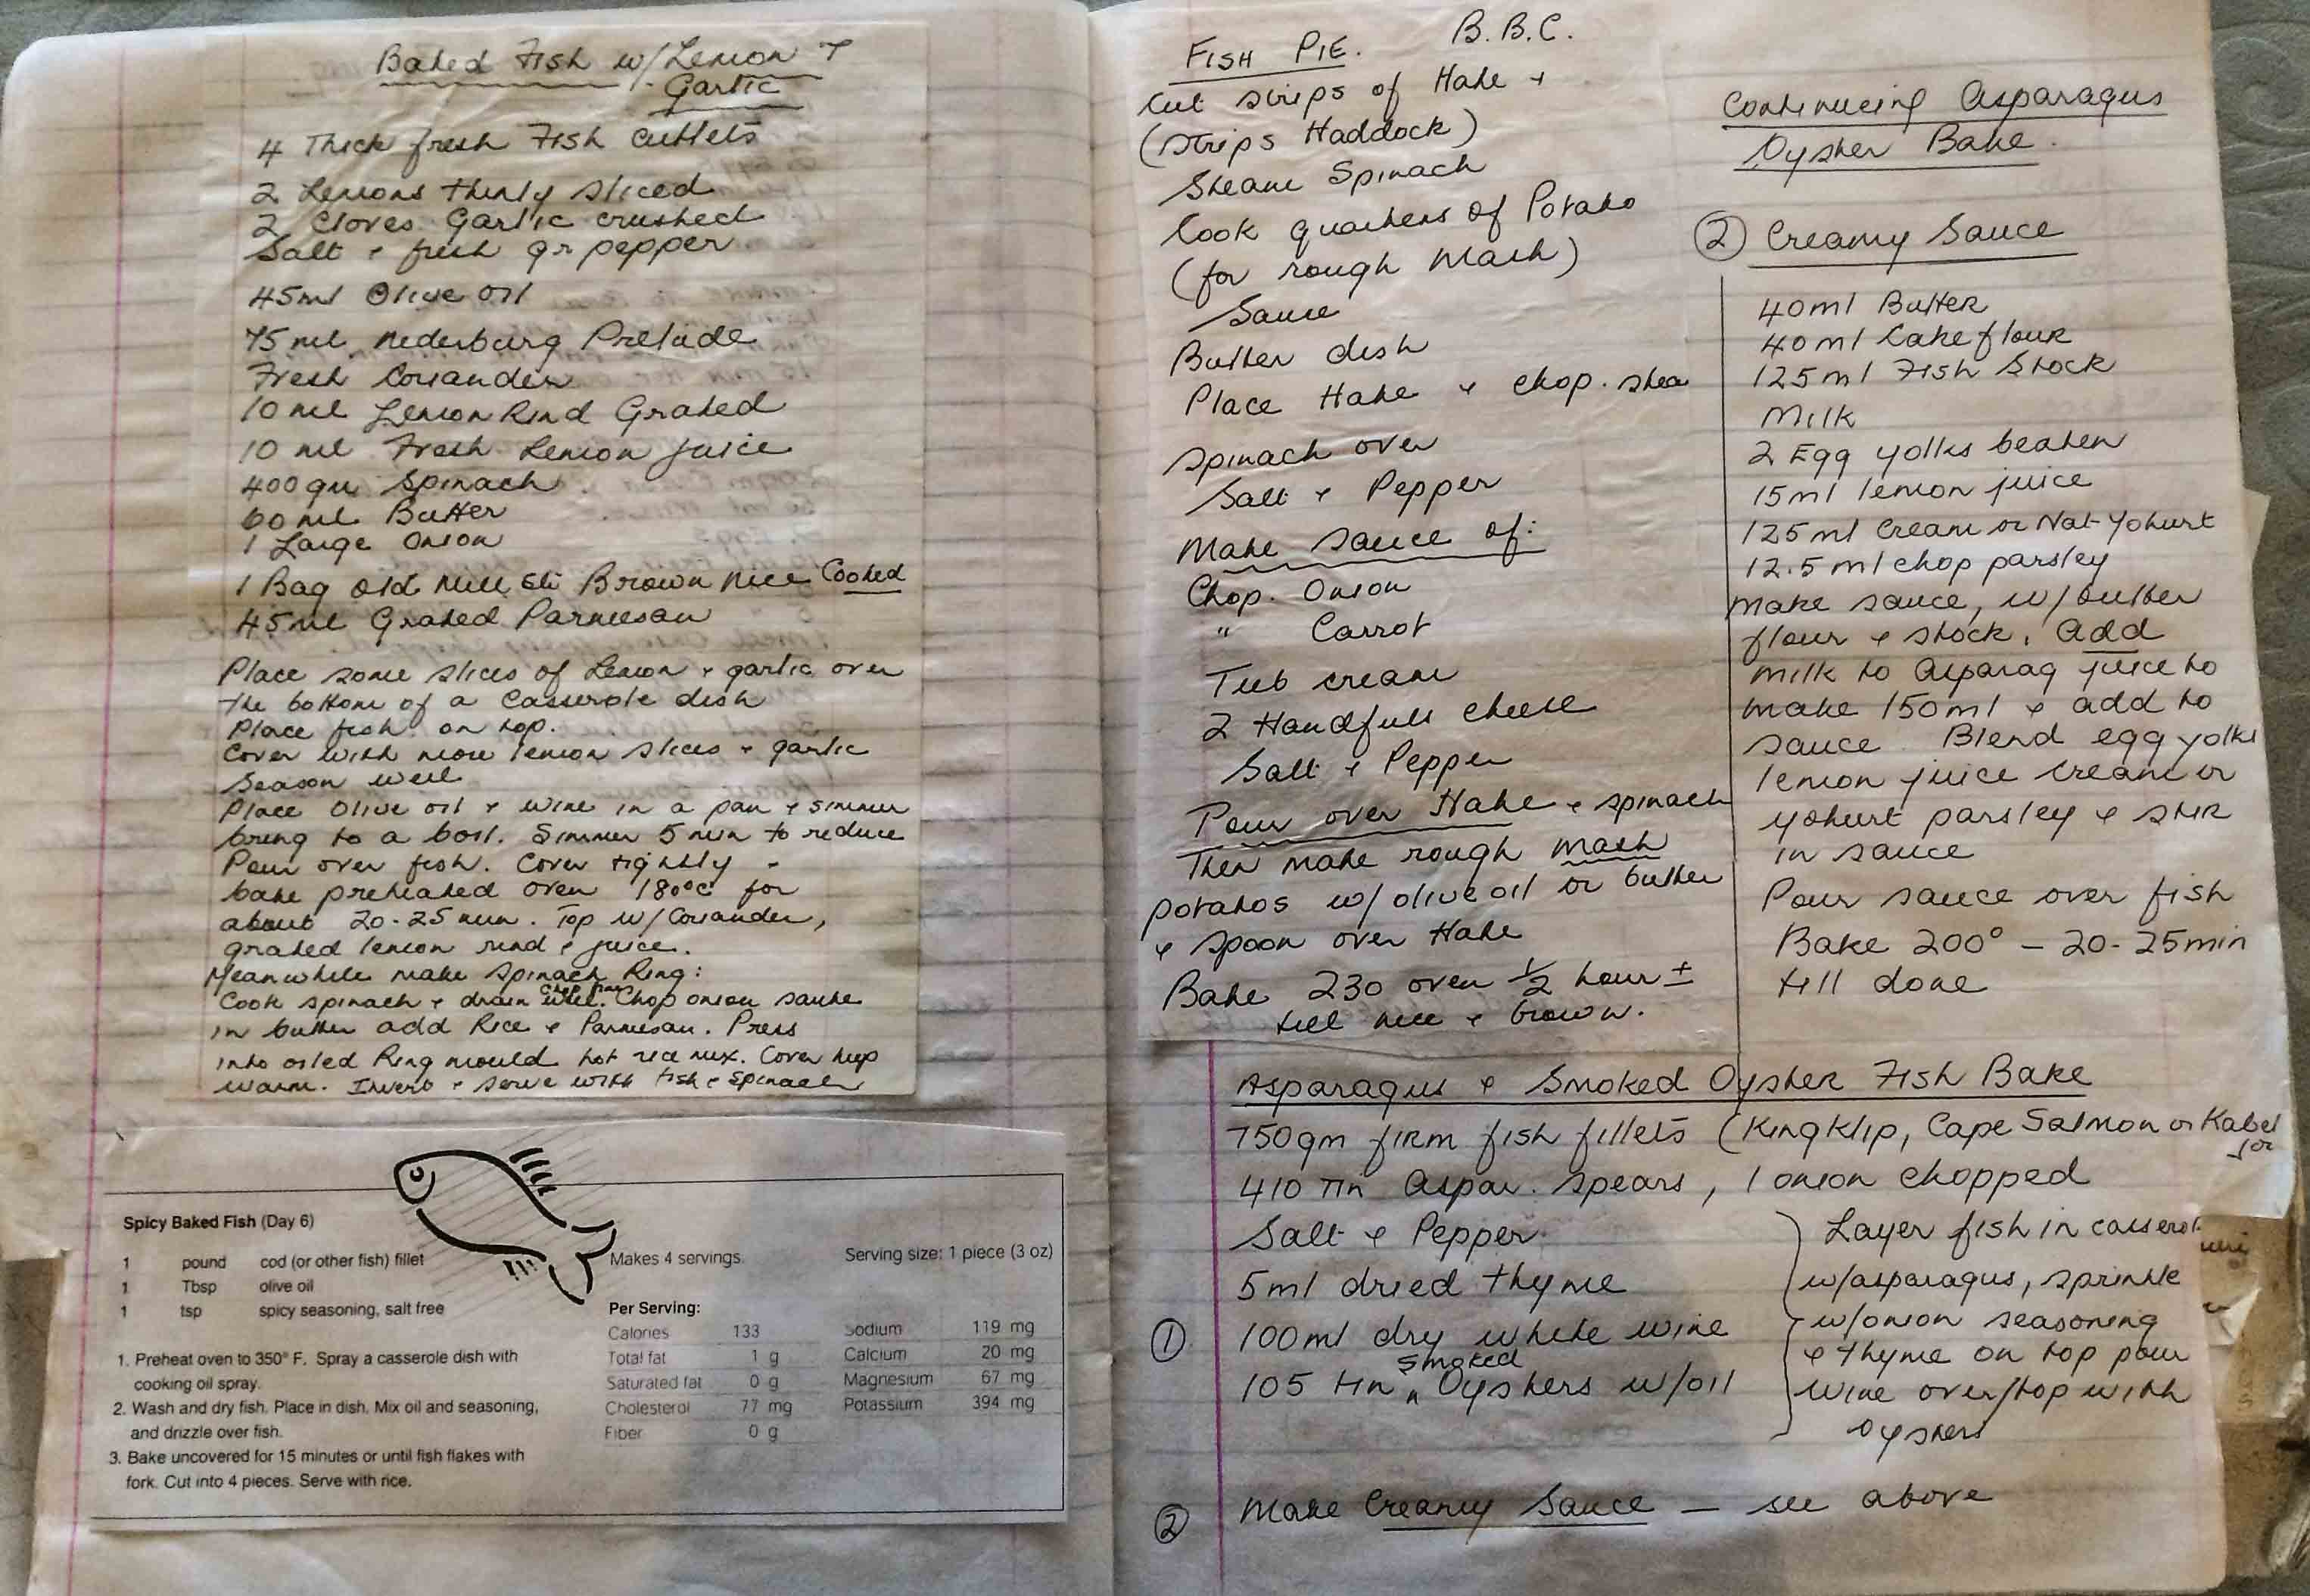 Baked Fish w/Lemon +
Garlic
4 Thick fresh Fish Cutlets
2 Lemons thinly sliced
2 Cloves Garlic crushed
Salt + fresh gr pepper
45ml Olive oil
75 ml Nederburg Prelude
Fresh Coriander
10 ml Lemon Rind Grated
10 ml Fresh Lemon juice
400gm Spinach
60 ml Butter
1 Large Onion
1 Bag Old Mill Brown Rice Cooked
45 ml Grated Parmesan
Place some slices of Lemon + garlic over
the bottom of a Casserole dish
Place fish on top.
Cover with more lemon slices + garlic
Season well
Place Olive oil + wine in a pan + simmer
bring to a boil. Simmer 5 min to reduce
Pour over fish. Cover tightly -
bake preheated oven 180°c for
about 20-25 min. Top w/Coriander,
grated lemon rind + juice.
Meanwhile make Spinach Ring:
Cook spinach + drain well. Chop onion saute
in butter add Rice + Parmesan. Press
into oiled Ring mould hot rice mix. Cover keep
warm. Invert + serve with fish + Spinach
Spicy Baked Fish (Day 6)
1 pound cod (or other fish) fillet
1 Tbsp olive oil
1 tsp spicy seasoning, salt free
1. Preheat oven to 350° F. Spray a casserole dish with
cooking oil spray.
2. Wash and dry fish. Place in dish. Mix oil and seasoning,
and drizzle over fish.
3. Bake uncovered for 15 minutes or until fish flakes with
fork. Cut into 4 pieces. Serve with rice.
Makes 4 servings. Serving size: 1 piece (3 oz)
Per Serving:
Calories 133 Sodium 119 mg
Total fat 1 g Calcium 20 mg
Saturated fat 0 g Magnesium 67 mg
Cholesterol 77 mg Potassium 394 mg
Fiber 0 g
FISH PIE. B.B.C.
Cut strips of Hake +
(strips Haddock)
Steam Spinach
Cook quarters of Potato
(for rough Mash)
Sauce
Butter dish
Place Hake + chop. stea
spinach over
Salt + Pepper
Make sauce of:
Chop. Onion
" Carrot
Tub cream
2 Handfulls cheese
Salt + Pepper
Pour over Hake + spinach
Then make rough mash
potatos w/olive oil or butter
+ spoon over Hake
Bake 230 oven 1/2 hour ±
till nice + brown.
Continueing Asparagus
Oyster Bake.
② Creamy Sauce
40ml Butter
40ml Cake flour
125ml Fish Stock
Milk
2 Egg yolks beaten
15ml lemon juice
125ml Cream or Nat-Yohurt
12.5ml chop parsley
Make sauce, w/butter
flour + stock. Add
milk to Asparag juice to
make 150ml + add to
sauce. Blend egg yolks
lemon juice cream or
yohurt parsley + stir
in sauce
Pour sauce over fish
Bake 200° - 20-25min
till done
Asparagus + Smoked Oyster Fish Bake
750gm firm fish fillets (Kingklip, Cape Salmon or Kabel
jor
410 Tin Aspar. Spears, 1 onion chopped
Salt + Pepper
5ml dried thyme
① 100ml dry white wine
105 tin smoked Oysters w/oil
Layer fish in casserol
w/asparagus, sprinkle
w/onion seasoning
+ thyme on top pour
wine over/top with
oysters
② Make Creamy Sauce — see above